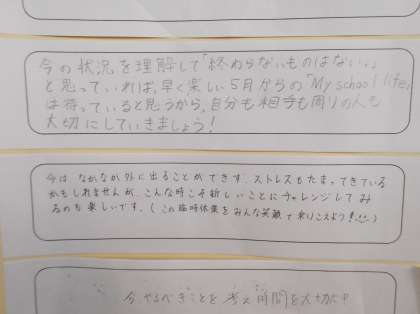 今の状況を理解して「終わらないものはない。」
と思っていれば、早く楽しい5月からの「My school life」
は待っていると思うから、自分も相手も周りの人も
大切にしていきましょう!
今は なかなか外に出ることができず、ストレスもたまってきている
かもしれませんが、こんな時こそ新しいことにチャレンジしてみ
るのも楽しいです。(この臨時休業をみんな笑顔で乗りこえよう!
今、やるべきことを考え時間を大切に